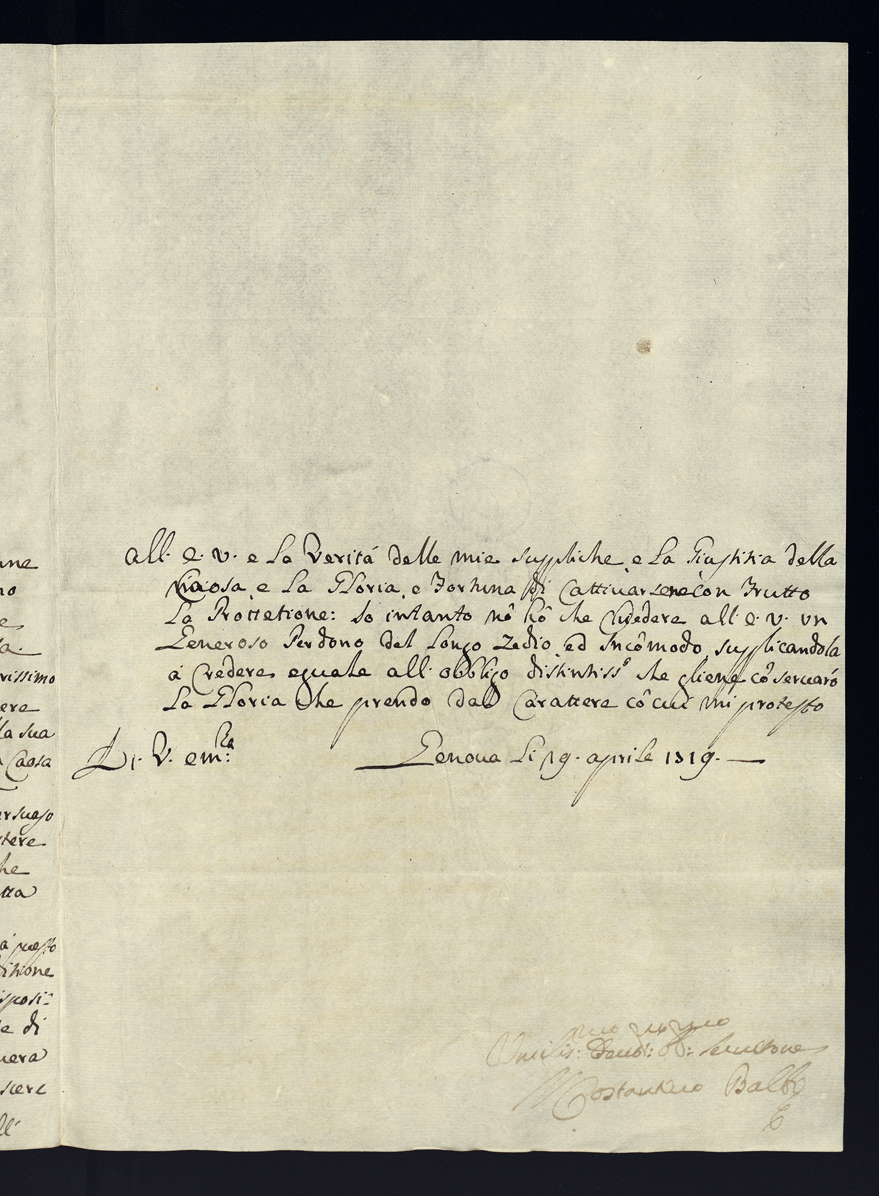 nne
no
e
la.
rissimo
ere
la sua
Caosa
stere
he
tta
á questo
titione
isposi=
e di
nera
scere
ll'
all. e. v. e La Veritá delle mie suppliche, e La Giustitia della
Caosa, e La Gloria, e Fortuna di Cattiuarsene con Frutto
La Prottetione: Io intanto nô hò che Chiedere all. e. v. vn
Generoso Perdono del Longo Tedio, ed Incômodo, supplicandola
á Credere eguale all. obbligo distintiss.º che gliene côseruaró
La Gloria che prendo dal Carattere cô cui mi protesto
Di. V. em.ª
Genoua Li 19. aprile 1819.
Umilis: Deuot: Ob: Seruitore
Costantino Balbi